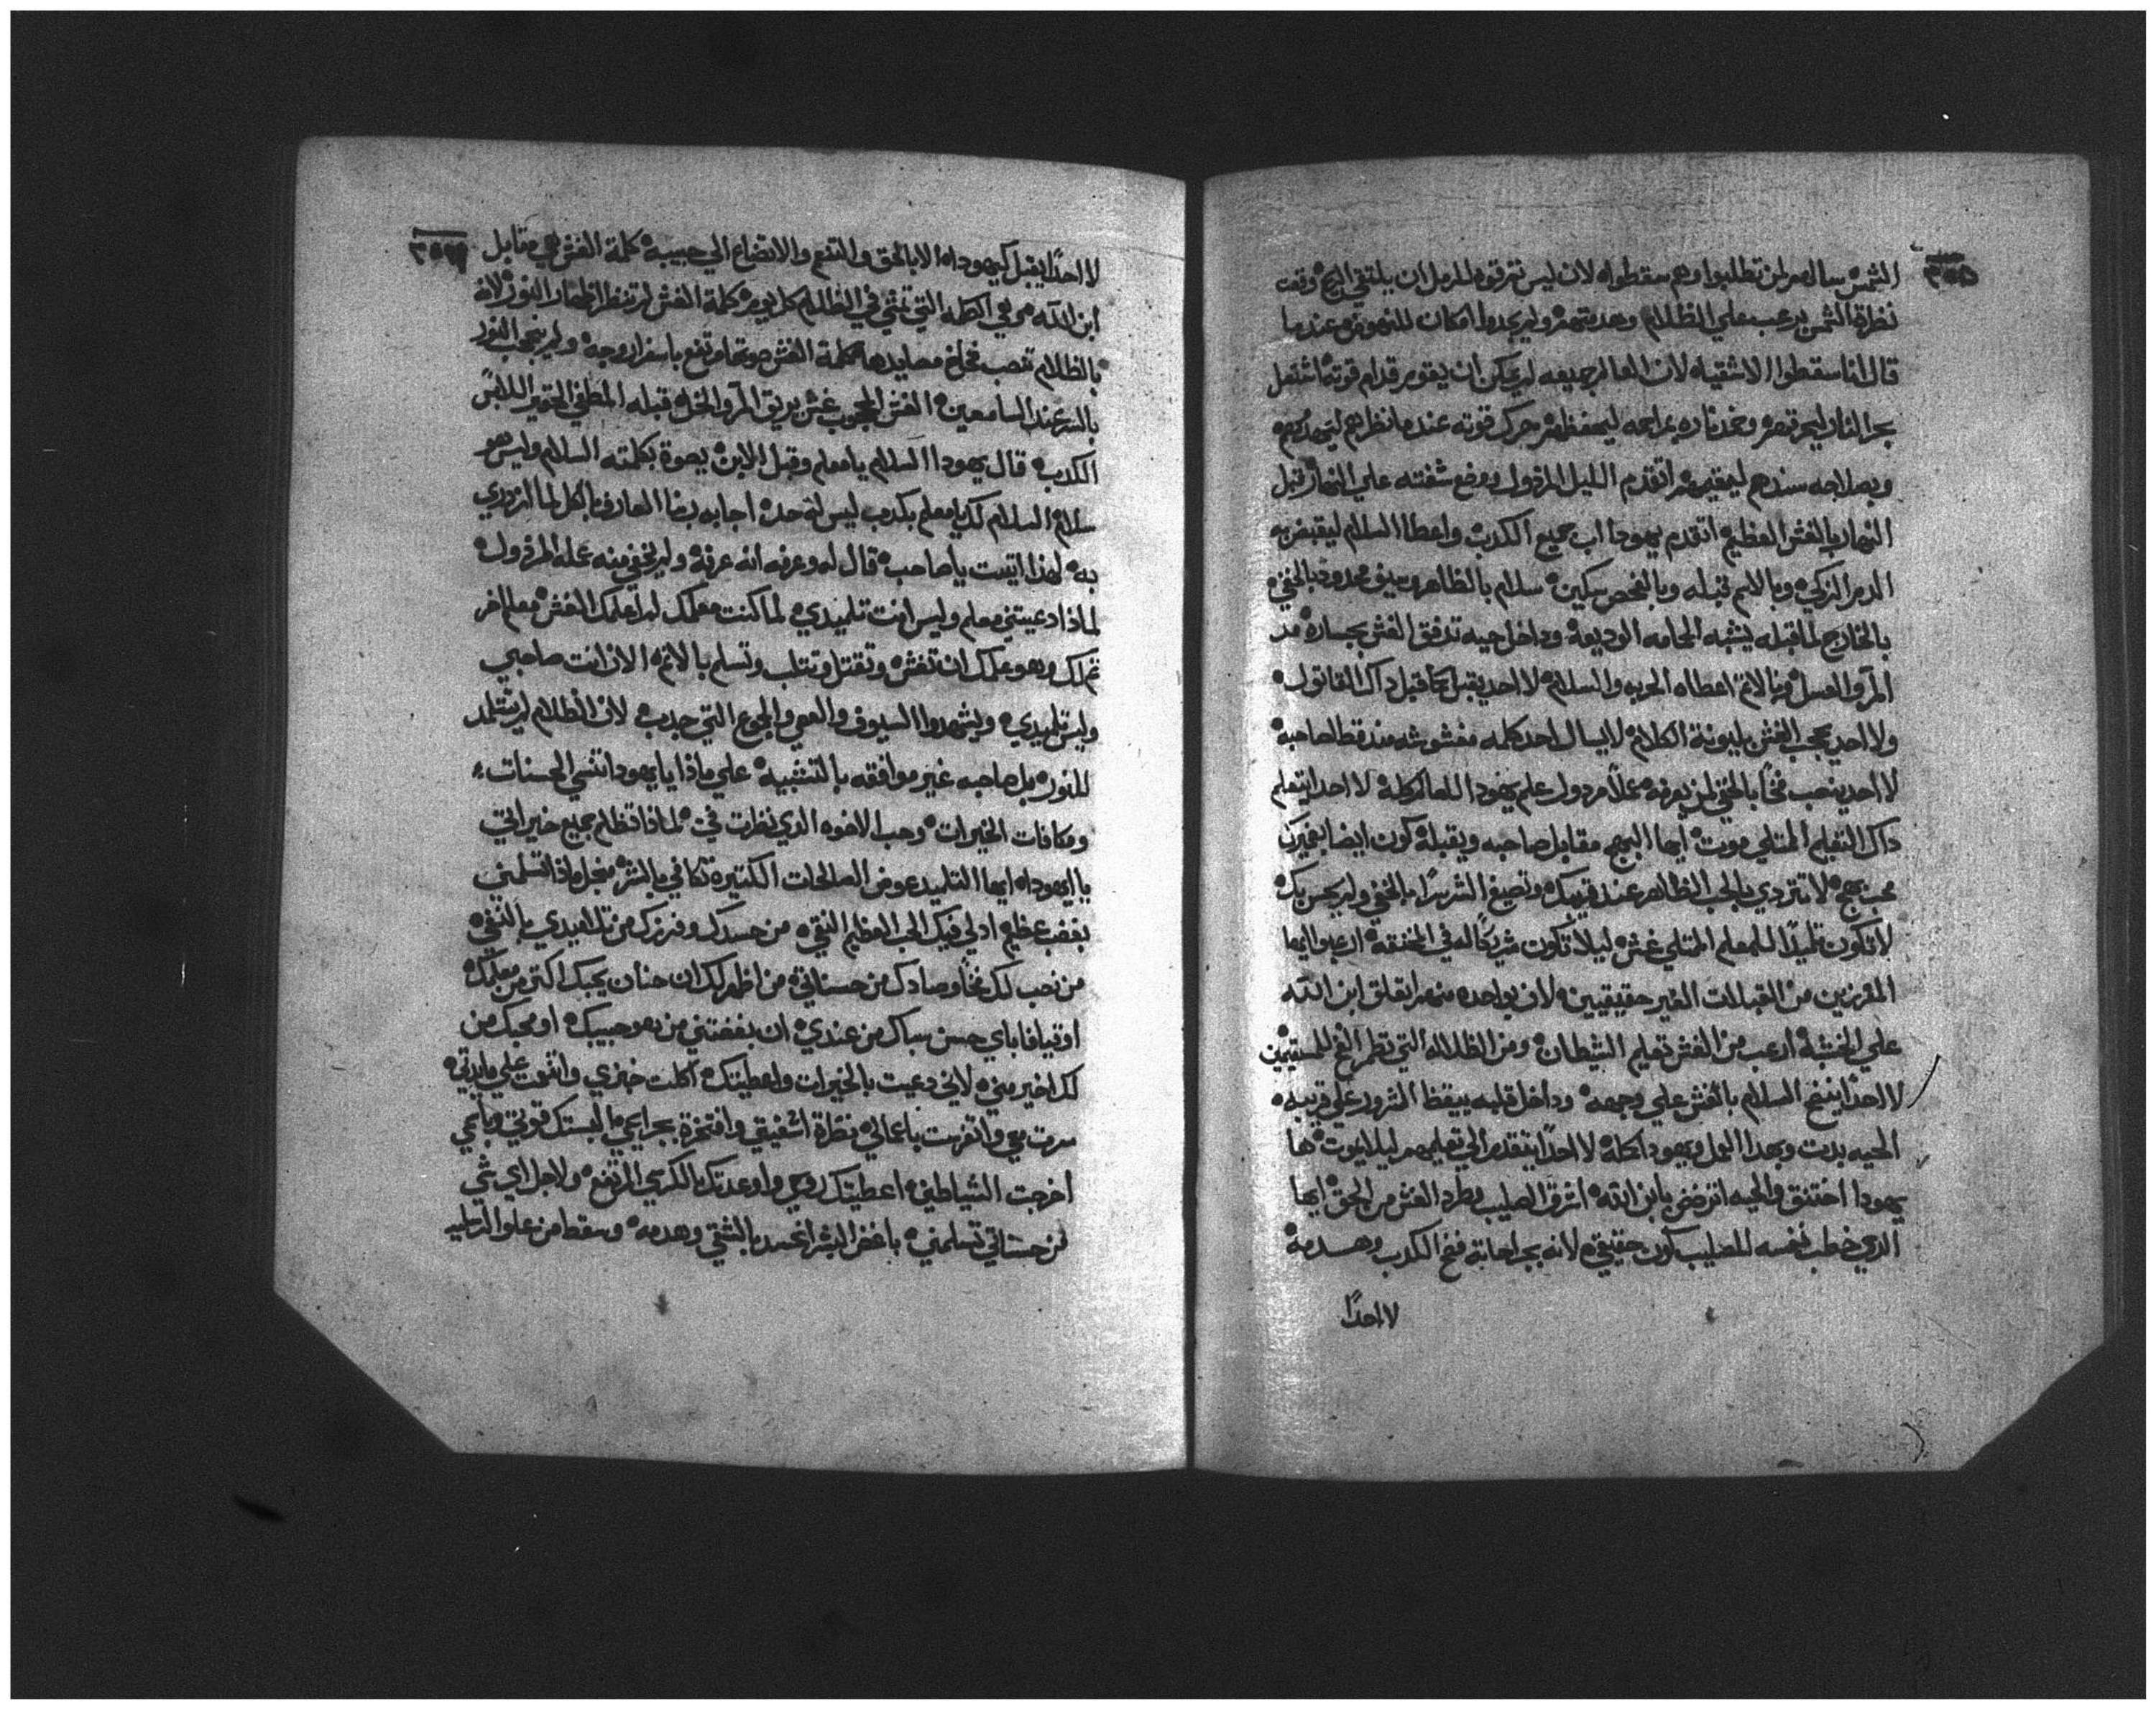 الشمس سالهم لمن تطلبوا وهم سقطواه لان ليس تترقوه للرمل ان يلتقي الريح وقعت
نظرة الشمس برعب علي الظلام وهدمتهم ولم يجدوا امكان للنهوض عندما
قال انا سقطوا الاشقياء لان العالم جميعه لم يمكن ان يقوم قدام قوته اشتعل
بحر النار ليحرقهم وخمد ناره بمراحمه ليحفظهم حرك قوته عندما نظرهم ليهدمهم
وبصلاحه سندهم ليقيمهم اتقدم الليل المرذول ووضع شفته علي النهار قبل
النهار بالغش العظيم اتقدم يهودا اب جميع الكدب واعطا السلام ليقبض به
الدم الزكي وبالاسم قبله وبالفحص سكين سلام بالظاهر سيف محدود بالخفي
بالخارج لما قبله يشبه الحمامه الوديعة وداخل حيه تدفق الغش بجساره مد
المر والعسل وبالاتم اعطاه الحربه والسلام لا احد يقبل كما قبل داك القاتول
ولا احد يحجب الغش بليونة الكلام لا يسال احد كلمه مغشوشه مند قط لصاحبه
لا احد ينصب فخاً بالخفي لمن يعرفه عملاً مردول علم يهودا للعالم كله لا احد يتعلم
داك التعليم الممتلي موت ايها البهج مقابل صاحبه ويقبله كون ايضا بضميرك
محب بهج لا تتردي بالحب الظاهر عند قريبك وتصيغ الشر سراً بالخفي ولم يحس بك
لا تكون تلميداً للمعلم الممتلي غش ليلا تكون شريكاً له في المخنقه ارعبوا ايها
المفرزين من القبلات الغير حقيقيين لان بواحده منهم اتعلق ابن الله
علي الخشبة ارعب من الغش تعليم الشيطان ومن الظلاله التي تطمر الفخ للمستقيمين
لا احداً ينفخ السلام بالغش علي وجهه وداخل قلبه ييقظ الشرور علي قريبه
الحيه بدت وبهدا العمل ويهودا كمله لا احداً يتقدم الي تعليمهم ليلا يموت ها
يهودا اختنق والحيه اترضض بابن الله اشرق الصليب وطرد الغش من الحق ايها
الدي خطب نفسه للصليب كون حقيقي لانه بجراحاته فخ الكدب وهدمه
لا احداً
لا احداً يقبل كيهوداه الا بالحق والتنعم والاتضاع الي حبيبه كلمة الغش هي مقابل
ابن الله هو هي الكلمه التي تمشي في الظلام كل يوم كلمة الغش لم تنظر النهار النور لانه
بالظلام تنصب فخاخ مصايدها كلمة الغش صوتها مرتفع باسفار وجه ولم ينحجب النور
بالسر عند السامعين الغش المحجوب غش بريق المر والخل قبله المطغي الحقير اللابس
الكدب قال يهودا السلام يا معلم وقبل الابن يهوة بكلمته السلام وليس هو
سلام السلام لك يا معلم بكدب ليس لتحده اجابه ربنا العارف بالكل لما ازدري
به لهذا اتيت يا صاحب قال له وعرفه انه عرفه ولم يخفي منه عمله المرذول
لماذا دعيتني معلم وليس انت تلميدي لما كنت معلمك لم اعلمك الغش معلم اخر
تملك وهو علمك ان تغش وتقتل وتثلب وتسلم بالاتم الان انت صاحبي
وليس تلميدي ويشهدوا السيوف والعصي والجموع التي جدبت لان الظلام لم يتتلمد
للنور بل صاحبه غير موافقه بالتشبيه علي ماذا يا يهودا تنسي الحسنات
ومكافات الخيرات وحب الاخوه الدي نظرت في لماذا تظلم جميع خيراتي
يا يهوداه ايها التلميد عوض الصالحات الكتيره تكافي بالشر فبجل ماذا تسلمني
بغضب عظيم ادلي فيك الحب العظيم النقي من حسدك وفرزك من تلاميدي بالنفي
من نصب لك فخاً وصادك من حسناتي من اظهر لك ان حنان يحبك اكتر من معلمك
او قيافا باي حسن سباك من عندي ان بغضتني من هو حبيبك او محبك من
لك اخير مني لاني دعيت بالخيرات واعطيتك اكلت خبزي واتنعمت علي مايدتي
سرت معي واتفرست باعمالي نظرة اشفيتي وافتخرت بجرايحي ما لبستك قوتي وباسمي
اخرجت الشياطين اعطيتك روحي واوعدتك بالكرسي المرتفع ولاجل اي شي
من حسناتي تسلمني باغض البشر انحسد بالشقي وهدمه وسقط من علو التلميد